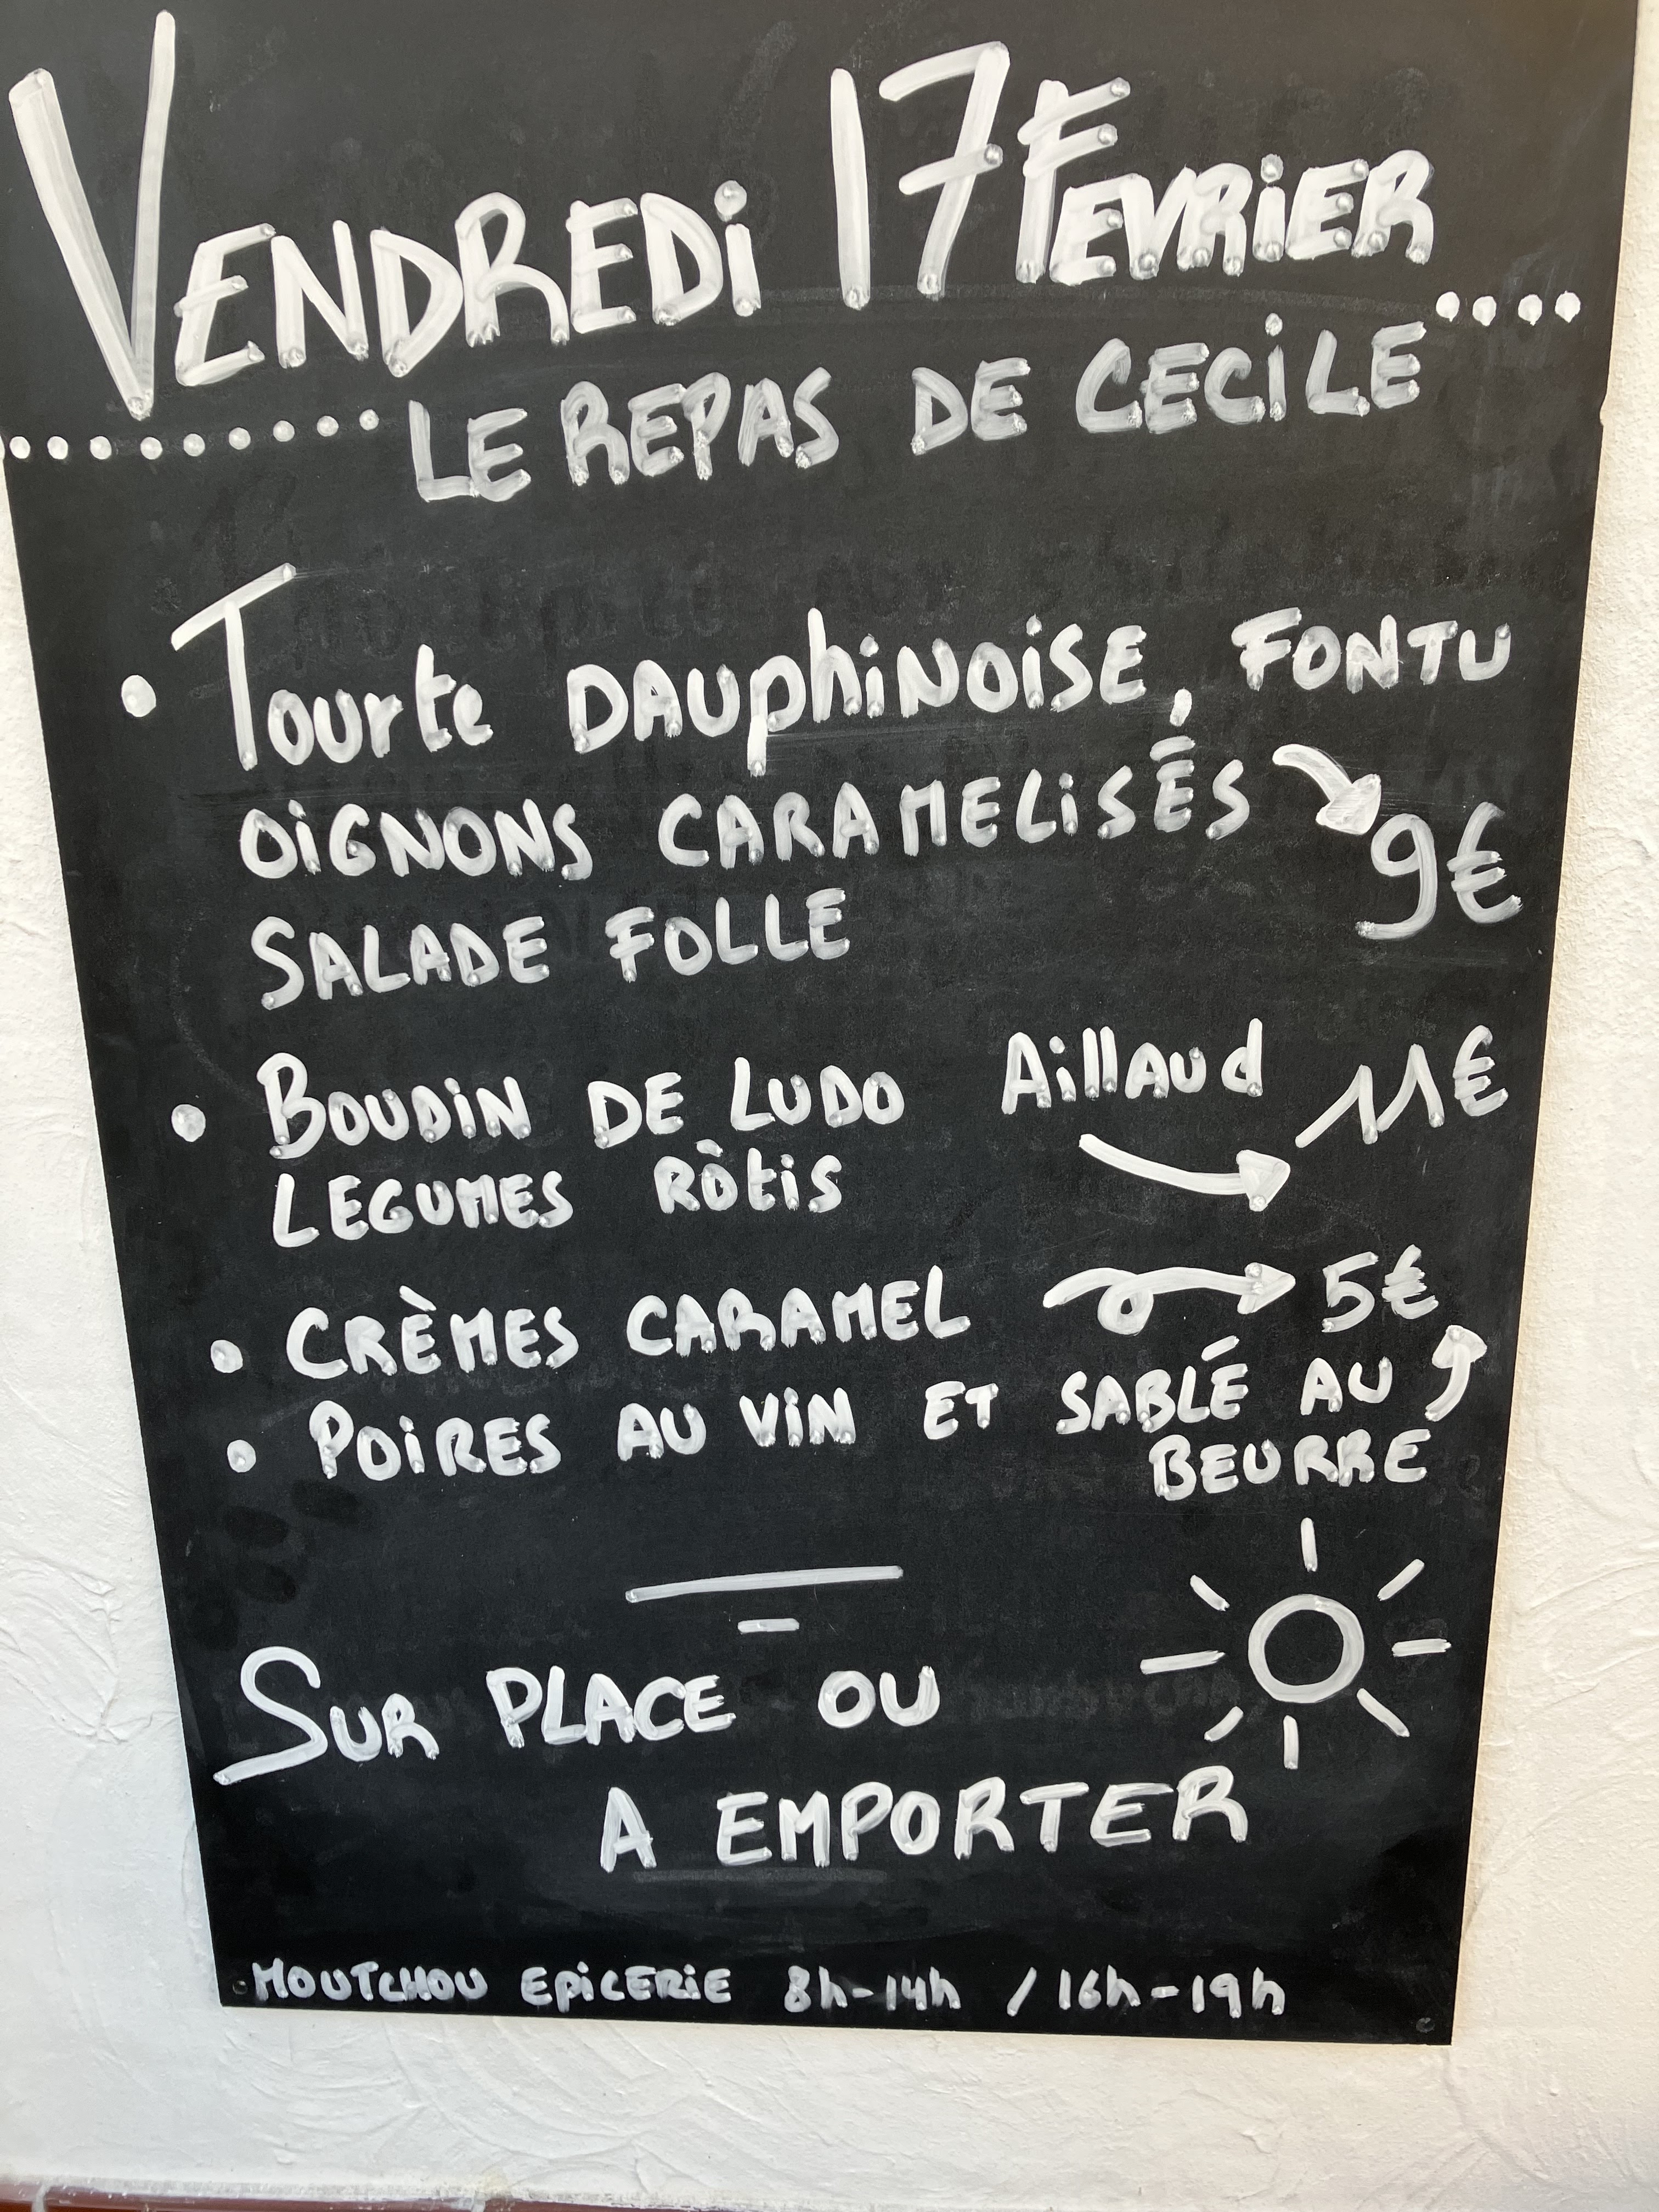 VENDREDi 17 FEVRiER
LE REPAS DE CECiLE
• Tourte DAUphiNOiSE, FONTU
OiGNONS CARAMELiSÉS 9€
SALADE FOLLE
• BOUDiN DE LUDO Aillaud 11€
LEGUMES RÔtiS
• CRÈMES CARAMEL 5€
• POiRES AU ViN ET SABLÉ AU
BEURRE
SUR PLACE OU
A EMPORTER
MOUTCHOU EpiCERiE 8h-14h / 16h-19h